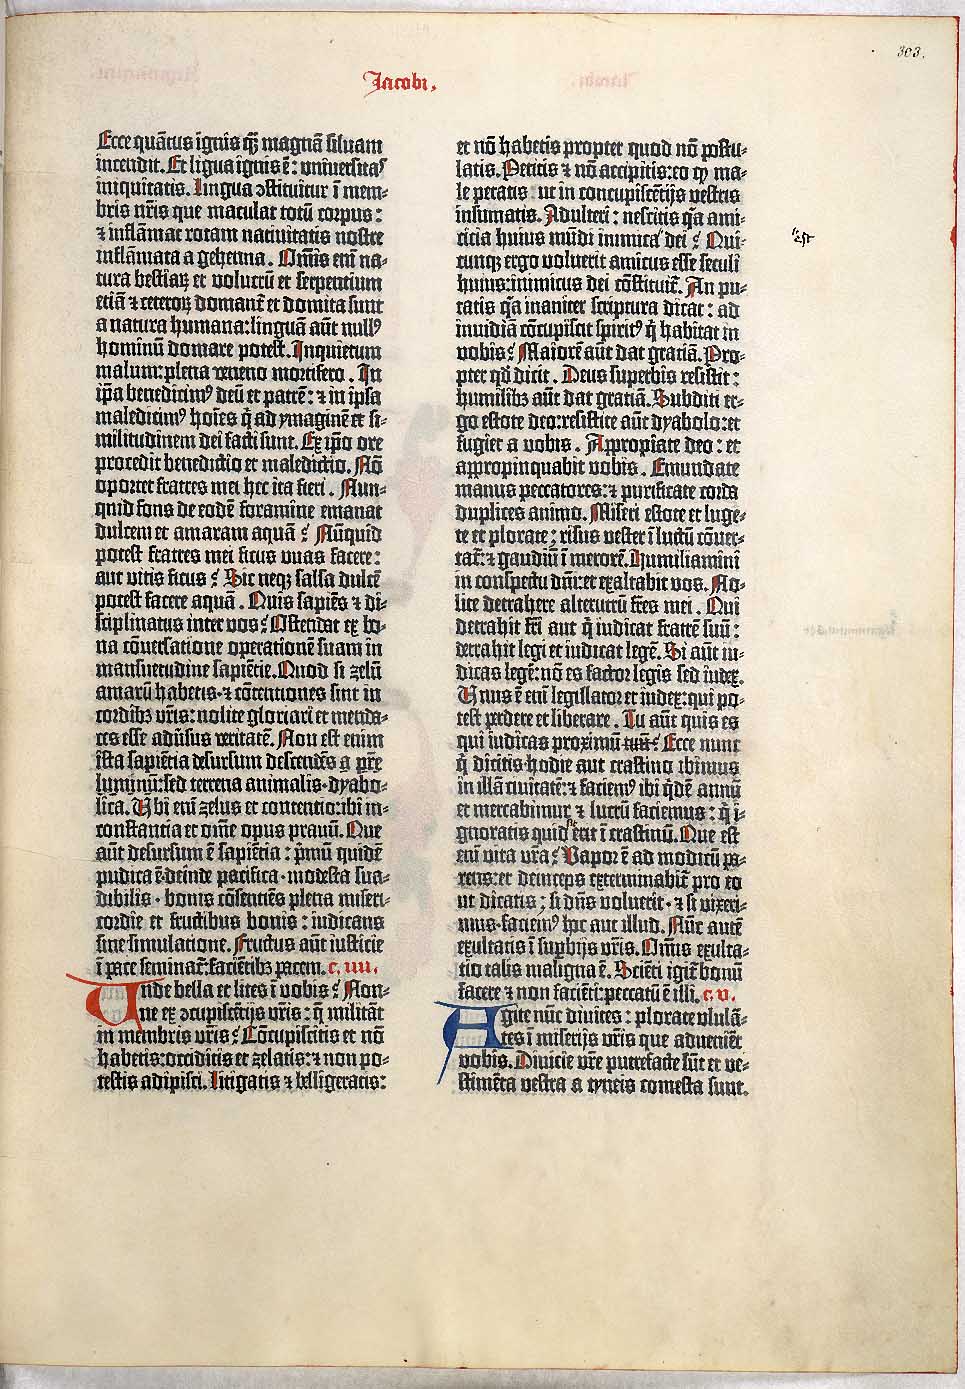 303.
Jacobi.
Ecce quãtus ignis q̃ȝ magnã siluam
incendit. Et ligua ignis ẽ: vniuersitaˢ
iniquitatis. Lingua ↄstituitur ĩ mem-
bris nr̃is que maculat totũ corpus:
⁊ inflãmat rotam natiuitatis nostre
inflãmata a gehenna. Om̃is eni᷒ na-
tura bestiaꝝ et volucrũ et serpentium
etiã ⁊ ceteroꝝ domant̃ et domita sunt
a natura humana: linguã aũt nullꝰ
hominũ domare potest. Inquietum
malum: plena veneno mortifero. In
ip̃a benedicimꝰ deũ et patrẽ: ⁊ in ipsa
maledicimꝰ hoĩes q̃ ad ymaginẽ et si-
militudinem dei facti sunt. Ex ip̃o ore
procedit benedictio et maledictio. Nõ
oportet fratres mei hec ita fieri. Nun-
quid fons de eodẽ foramine emanat
dulcem et amaram aquã? Nũquid
potest fratres mei ficus vuas facere:
aut vitis ficus? Sic neqȝ salsa dulcẽ
potest facere aquã. Quis sapiẽs ⁊ di-
sciplinatus inter vos? Ostendat ex bo-
na cõuersatione operationẽ suam in
mansuetudine sapiẽtie. Quod si zelũ
amarũ habetis· ⁊ cõtentiones sint in
cordibȝ vr̃is: nolite gloriari et menda-
ces esse adũsus veritatẽ. Non est enim
ista sapiẽtia desursum descendẽs a pr̃e
luminũ: sed terrena animalis· dyabo-
lica. Ubi enĩ zelus et contentio: ibi in-
constantia et om̃e opus prauũ. Que
aũt desursum ẽ sapiẽtia: pͥmũ quidẽ
pudica ẽ· deinde pacifica· modesta sua-
dibilis· bonis cõsentiẽs plena miseri-
cordie et fructibus bonis: iudicans
sine simulatione. Fructus aũt iusticie
ĩ pace seminat̃: faciẽtibȝ pacem. c. iiii.
Unde bella et lites ĩ vobis? Non-
ne ex ↄcupiscẽtijs vr̃is: q̃ militãt
in membris vr̃is? Cõcupiscitis et nõ
habetis: occiditis et zelatis: ⁊ non po-
testis adipisci. Litigatis ⁊ belligeratis:
et nõ habetis propter quod nõ postu-
latis. Petitis ⁊ nõ accipitis: eo ꝙ ma-
le petatis: ut in concupiscẽtijs vestris
insumatis. Adulteri: nescitis q̃a ami-
ticia huius mũdi inimica dei? Qui-
est
cunqȝ ergo voluerit amicus esse seculi
huius: inimicus dei cõstituit̃. An pu-
tatis q̃a inaniter scriptura dicat: ad
inuidiã cõcupiscit spiritꝰ q̃ habitat in
vobis? Maiorẽ aũt dat gratiã. Pro-
pter qd̃ dicit. Deus superbis resistit:
humilibȝ aũt dat gratiã. Subditi er-
go estote deo: resistite aũt dyabolo: et
fugiet a vobis. Appropiate deo: et
appropinquabit vobis. Emundate
manus peccatores: ⁊ purificate corda
duplices animo. Miseri estote et luge-
te et plorate; risus vester ĩ luctũ cõuer-
tat̃: ⁊ gaudiũ ĩ merorẽ. Humiliamini
in conspectu dñi: et exaltabit vos. No-
lite detrahere alterutrũ fr̃es mei. Qui
detrahit fr̃i aut q̃ iudicat fratrẽ suũ:
detrahit legi et iudicat legẽ. Si aũt iu-
dicas legẽ: nõ es factor legis sed iudex.
Unus ẽ enĩ legislator et iudex: qui po-
test perdere et liberare. Tu aũt quis es
qui iudicas proximũ tuũ? Ecce nunc
q̃ dicitis hodie aut crastino ibimus
in illã ciuitatẽ: ⁊ faciemꝰ ibi q̃dẽ annũ
et mercabimur ⁊ lucrũ faciemus: q̃ i-
gnoratis quid erit ĩ crastinũ. Que est
enĩ vita vr̃a? Vapor ẽ ad modicũ pa-
rens: et deinceps exterminabit̃ pro eo
ut dicatis; si dñs voluerit· ⁊ si vixeri-
mus· faciemꝰ hoc aut illud. Nũc autẽ
exultatis ĩ supbijs vr̃is. Om̃is exulta-
tio talis maligna ẽ. Sciẽti igit̃ bonũ
facere ⁊ non faciẽti: peccatũ ẽ illi. c. v.
Agite nũc diuites: plorate vlulã-
tes ĩ miserijs vr̃is que adueniẽt
vobis. Diuicie vr̃e putrefacte sũt et ve-
stimẽta vestra a tyneis comesta sunt.